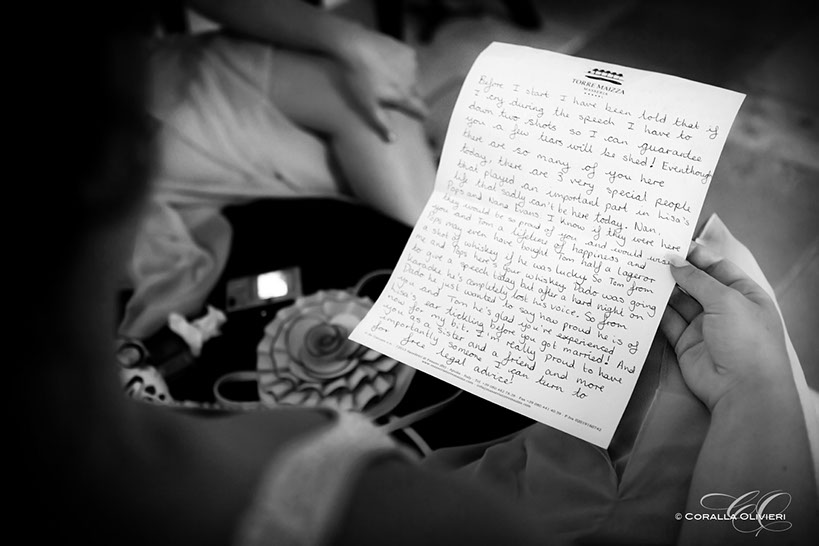 TORRE MAIZZA
MASSERIA
Before I start I have been told that if
I cry during the speech I have to
down two shots so I can guarantee
you a few tears will be shed! Eventhough
there are so many of you here
today, there are 3 very special people
that played an important part in Lisa's
life that sadly can't be here today. Nan,
Pops and Nana Evans. I know if they were here
they would be so proud of you and would wish
you and Tom a lifetime of happiness and
Pops may even have bought Tom half a lager or
a shot of whiskey if he was lucky. So Tom from
me and Pops here is your whiskey. Dado was going
to give a speech today but after a hard night on
karaoke he's completely lost his voice. So from
Dado he just wanted to say how proud he is of
you and Tom he's glad you've experienced
now's ear tickling before you got married! And
now for my bit. I'm really proud to have
you as a sister and a friend and more
importantly someone I can turn to
for free legal advice!
© CORALLA OLIVIERI